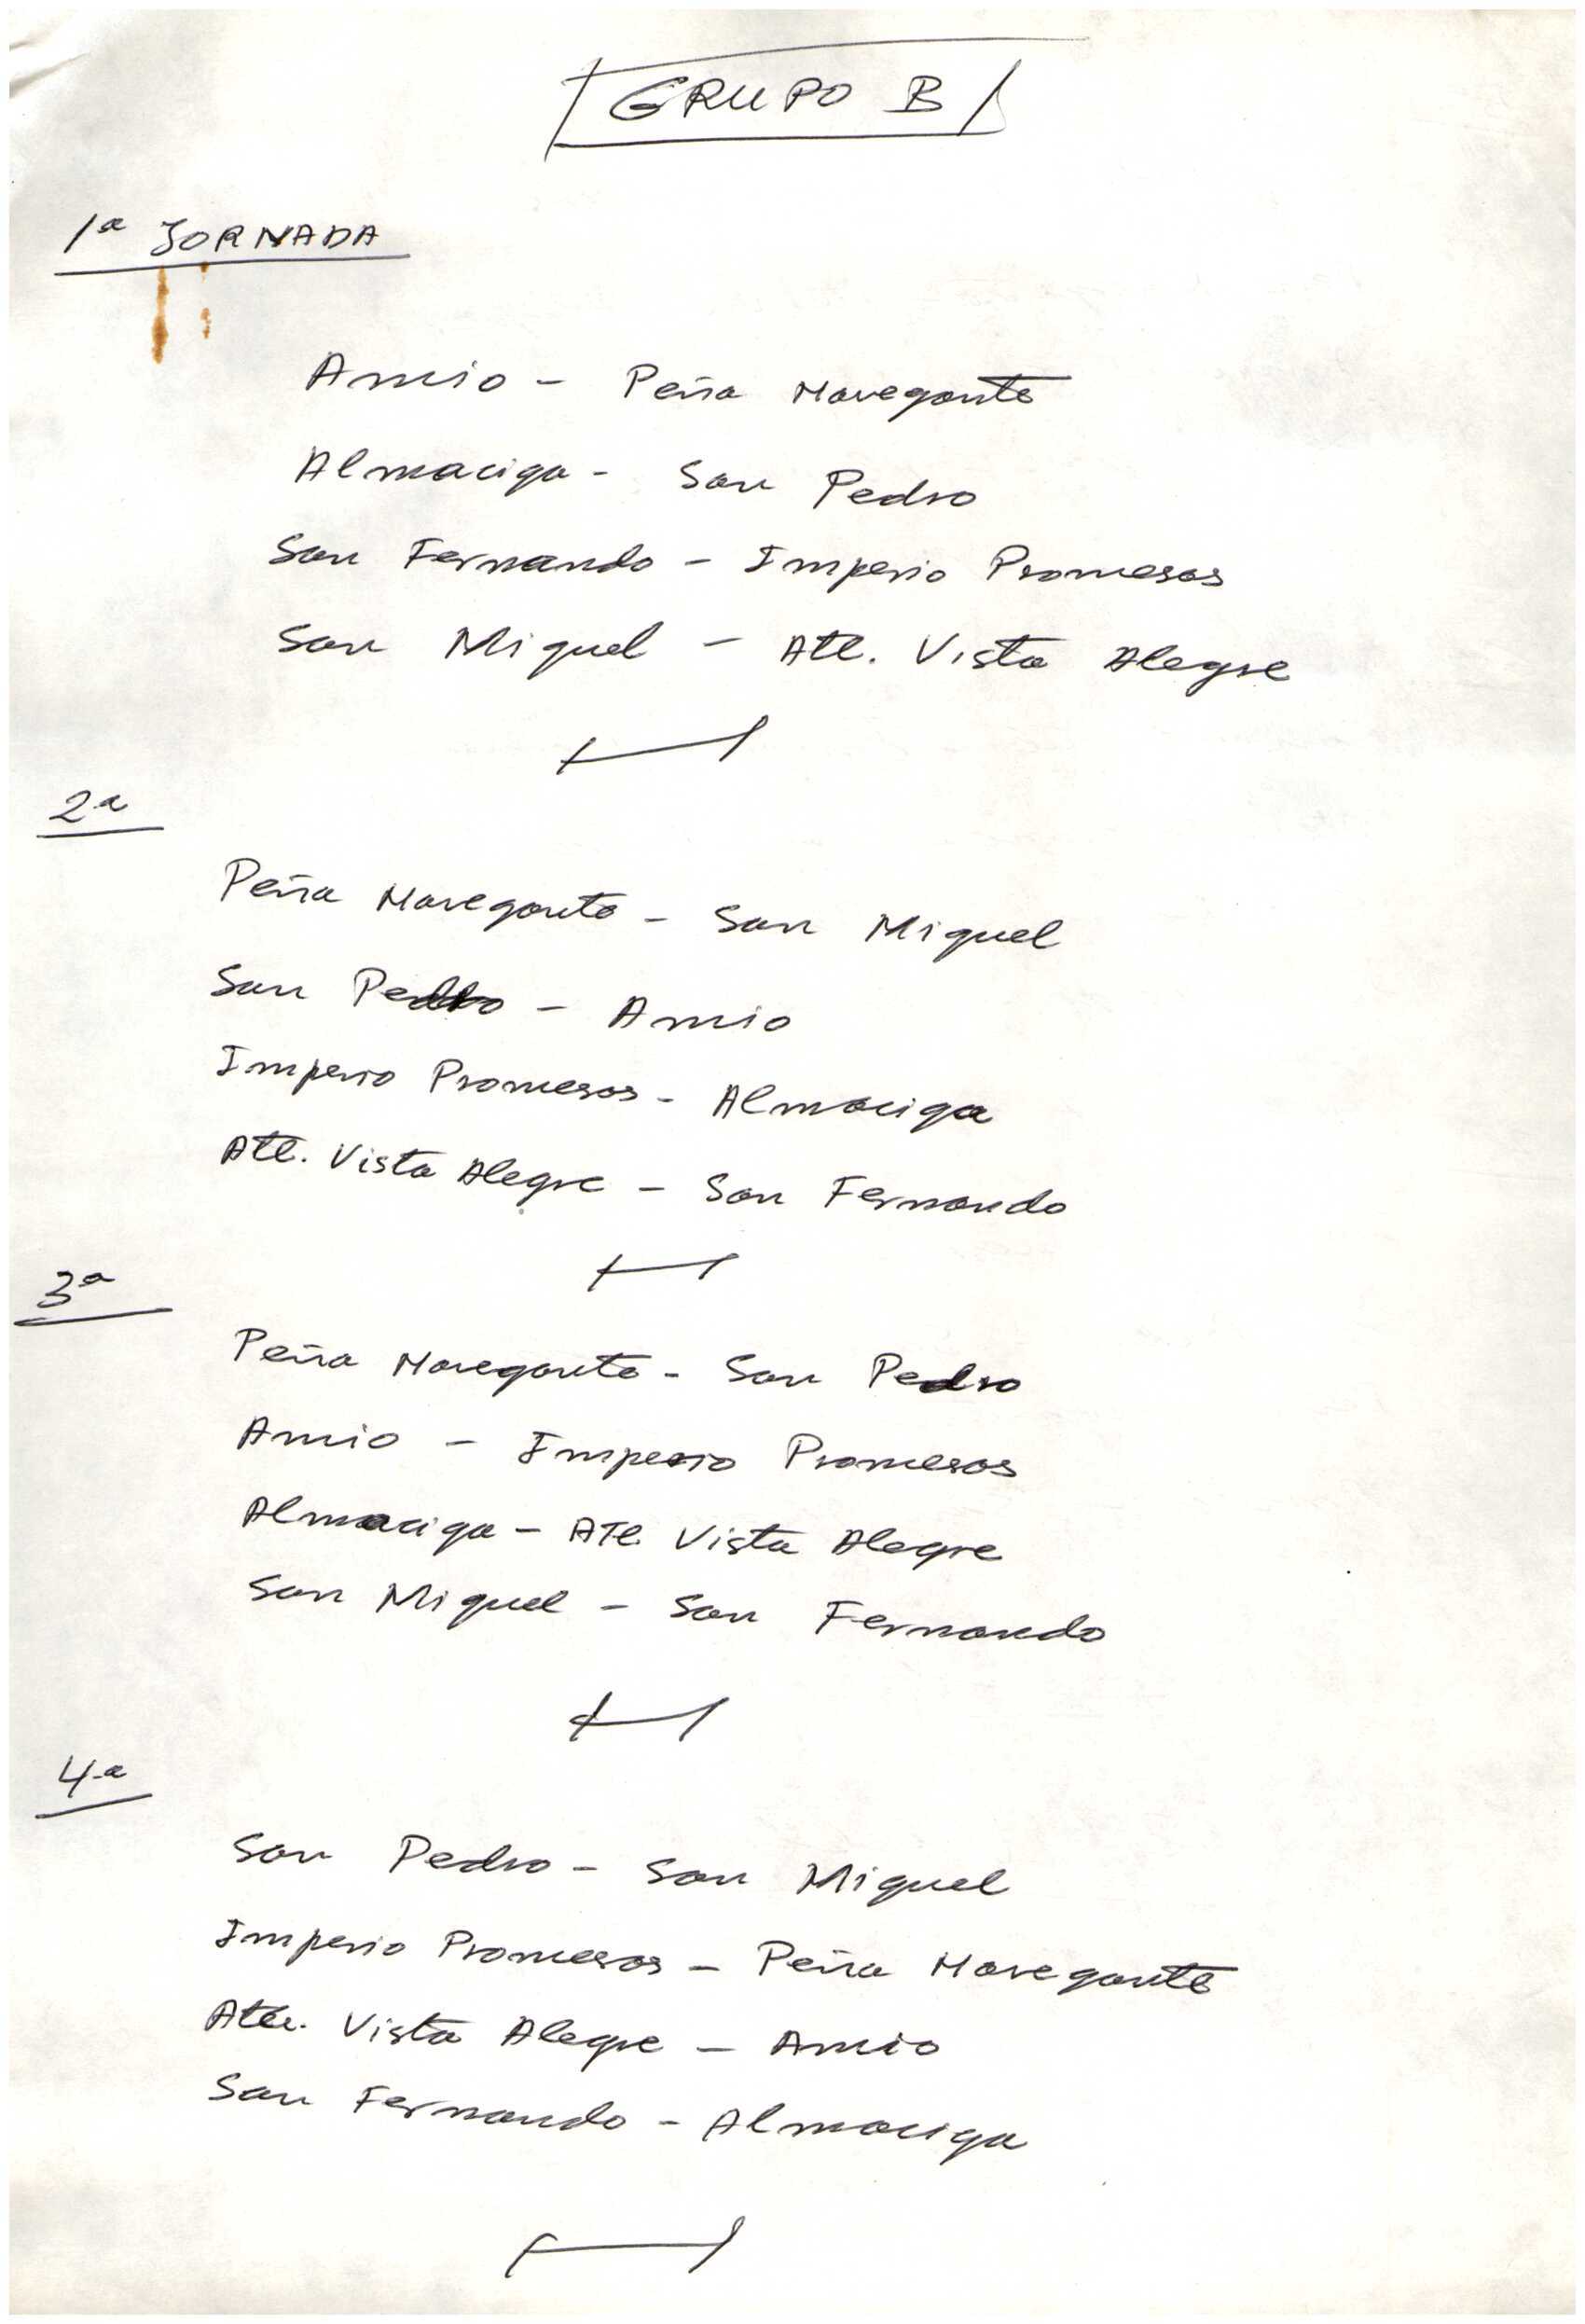 GRUPO B
1ª JORNADA
Amio - Peña Navegante
Almaciga - San Pedro
San Fernando - Imperio Promesas
San Miguel - Atl. Vista Alegre
2ª
Peña Navegante - San Miguel
San Pedro - Amio
Imperio Promesas - Almaciga
Atl. Vista Alegre - San Fernando
3ª
Peña Navegante - San Pedro
Amio - Imperio Promesas
Almaciga - Atl. Vista Alegre
San Miguel - San Fernando
4ª
San Pedro - San Miguel
Imperio Promesas - Peña Navegante
Atl. Vista Alegre - Amio
San Fernando - Almaciga